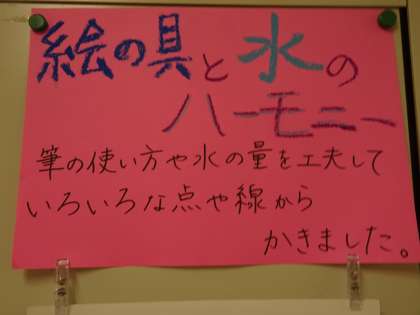 絵の具と水の
ハーモニー
筆の使い方や水の量を工夫して
いろいろな点や線から
かきました。